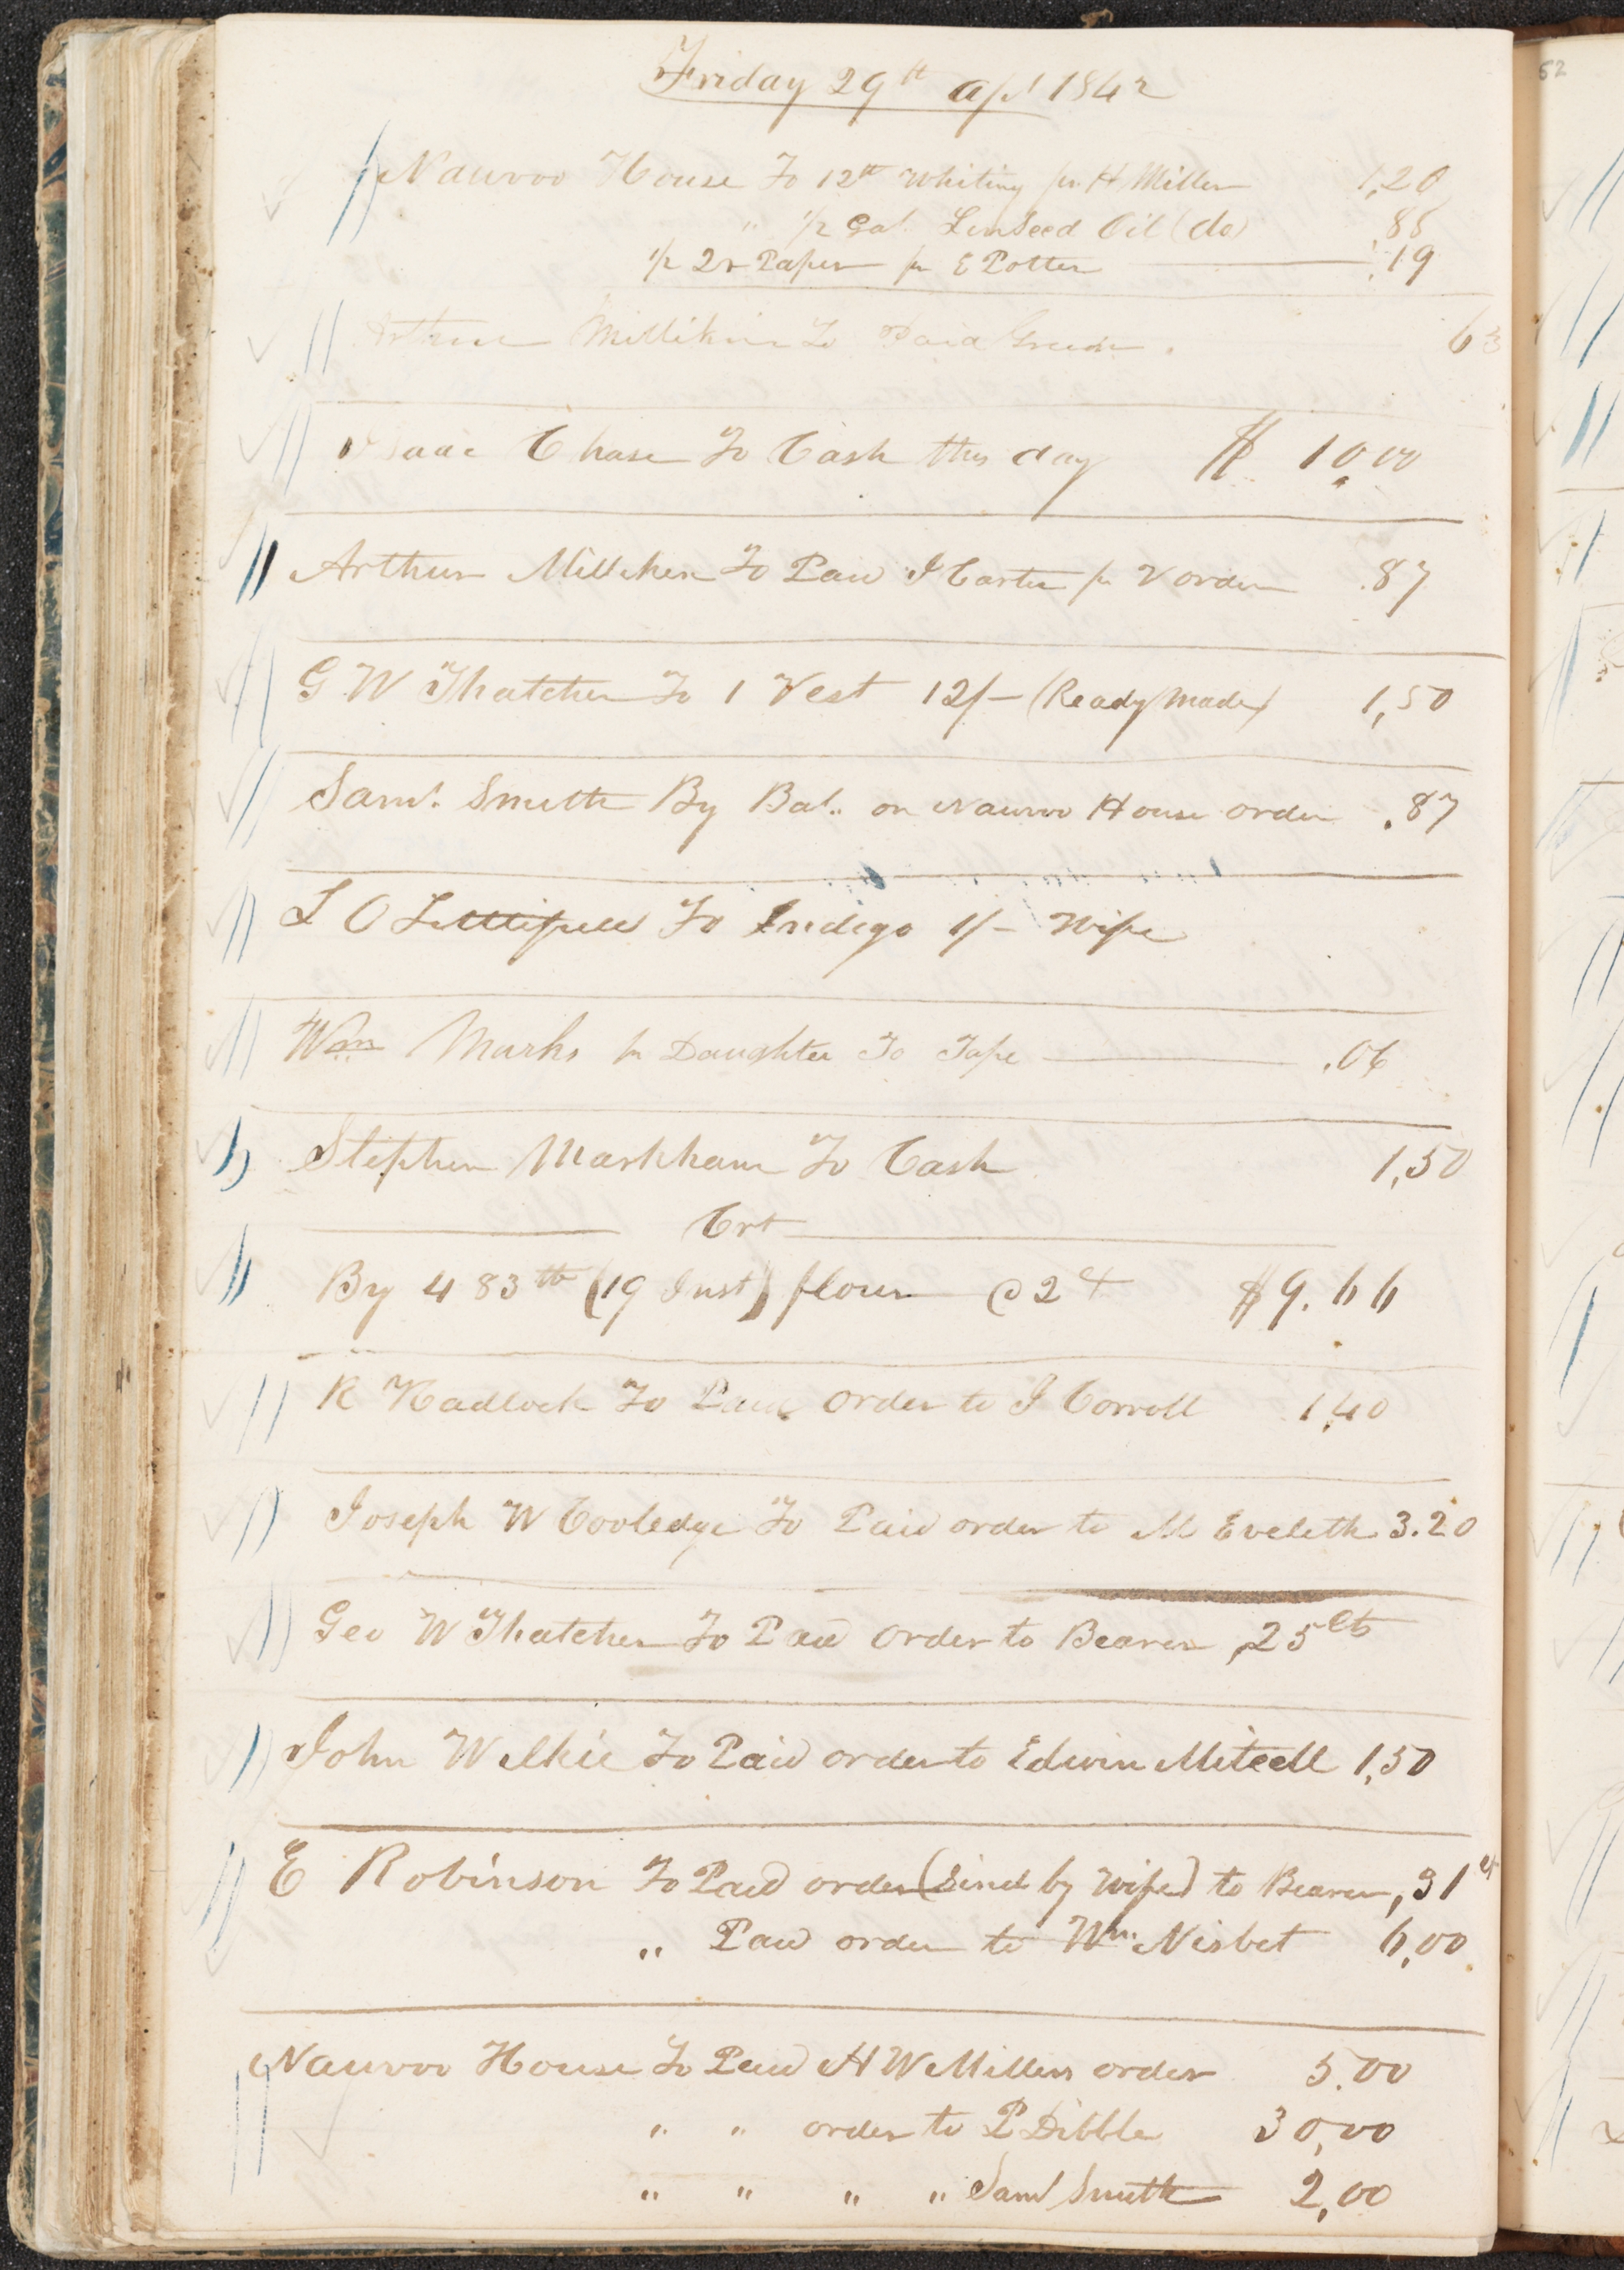 Friday 29th Apl 1842
Nauvoo House To 12lb Whiting pr H Miller 1,20
" 1/2 Gal. Linseed Oil (do) 88
1/2 2r Paper pr E Potter .19
Arthur Millikin To Paid 63
Isaac Chase To Cash this day $ 10,00
Arthur Milliken To Paid J Carter pr V order .87
G W Thatcher To 1 Vest 12/- (Ready Made) 1,50
Saml. Smith By Bal. on Nauvoo House order .87
L O Littlefield To Indigo 1/- Wife
Wm Marks pr Daughter To Tape .06
Stephen Markham To Cash 1,50
Crt
By 483lb (19 Inst) flour @ 2c $9.66
R Hadlock To Paid order to J Corroll 1,40
Joseph W Cooledge To Paid order to M Eveleth 3.20
Geo W Thatcher To Paid order to Bearer ,25cts
John Wilkie To Paid order to Edwin Miteell 1,50
E Robinson To Paid order (Sind by Wife) to Bearer ,31cts
" Paid order to Wm. Nisbet 6,00
Nauvoo House To Paid H W Millers order 5.00
" " order to P Dibble 30,00
" " " " Saml Smith 2,00
62